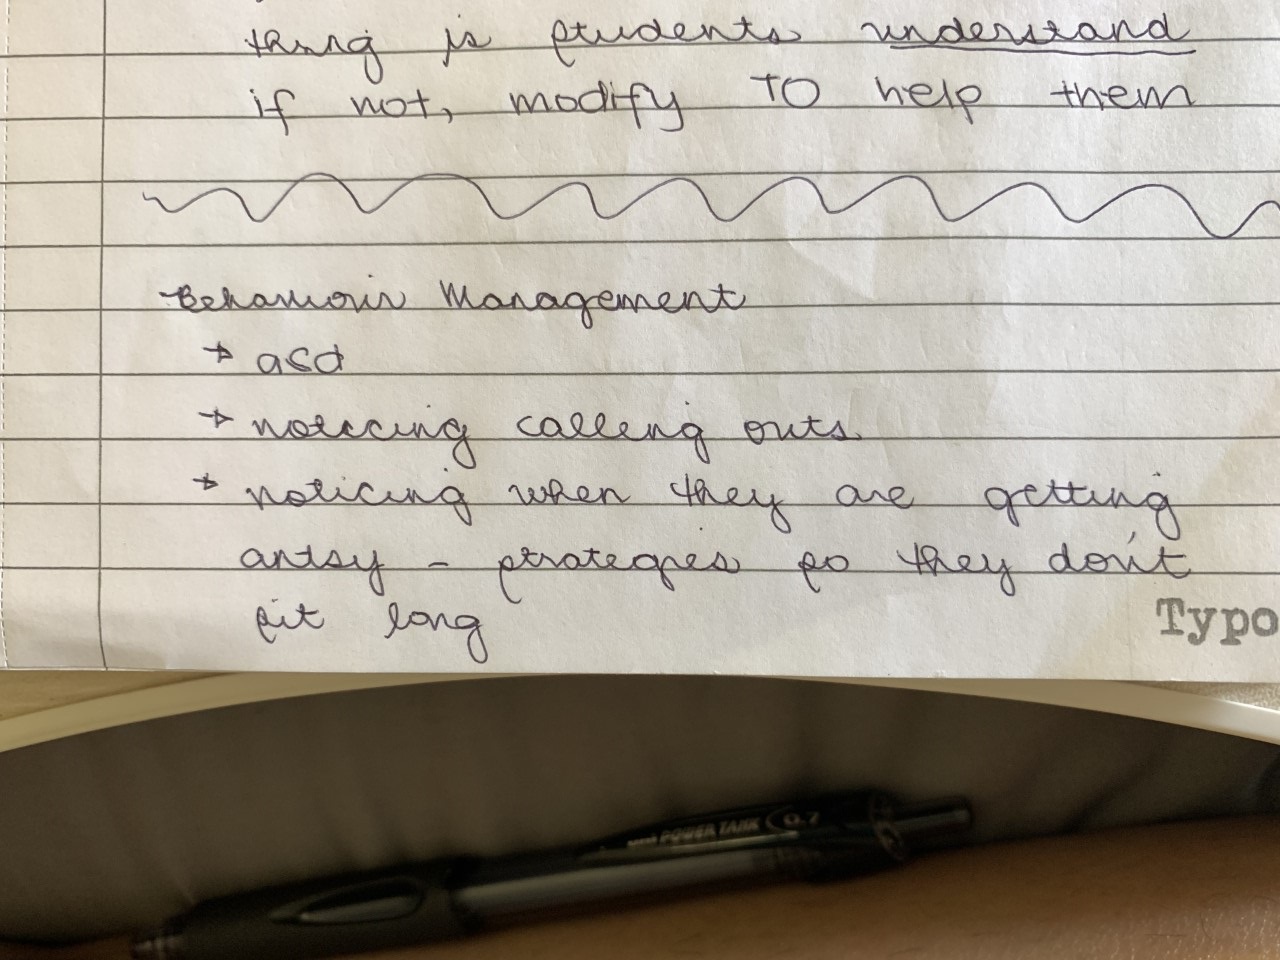 thing is students understand
if not, modify TO help them
Behaviour Management
→ asd
→ noticing calling outs
→ noticing when they are getting
antsy - strategies so they don't
sit long
Typo
POWER TANK 0.7